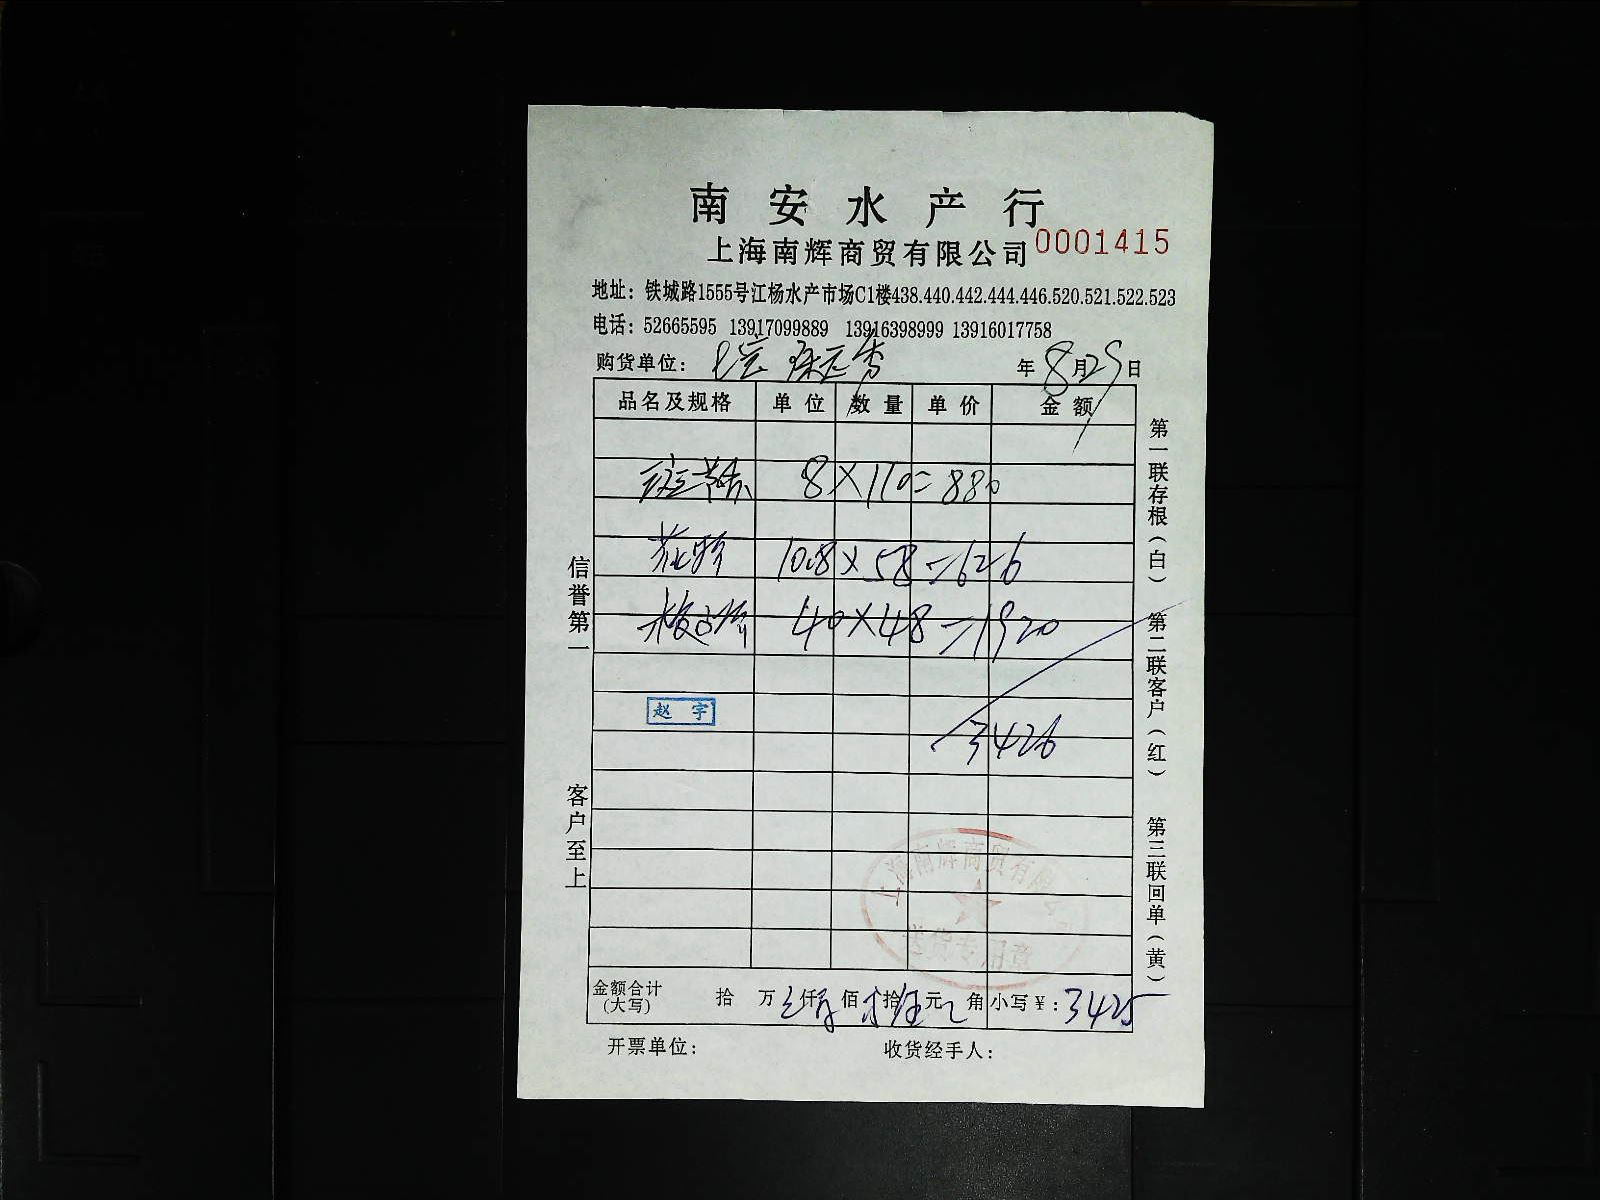 南安水产行
上海南辉商贸有限公司 0001415
地址：铁城路1555号江杨水产市场C1楼438.440.442.444.446.520.521.522.523
电话：52665595 13917099889 13916398999 13916017758
购货单位：
年8月29日
品名及规格 单位 数量 单价 金额
8×110=880
10.8×58=626
40×48=1920
赵宇
3426
上海南辉商贸有限公司
送货专用章
金额合计(大写) 拾 万 仟 佰 拾 元 角 小写¥：3425
开票单位： 收货经手人：
信誉第一
客户至上
第一联存根（白）
第二联客户（红）
第三联回单（黄）